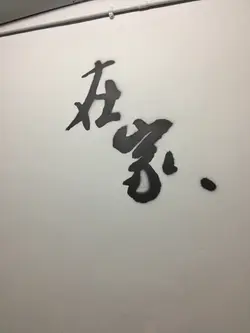 在家、